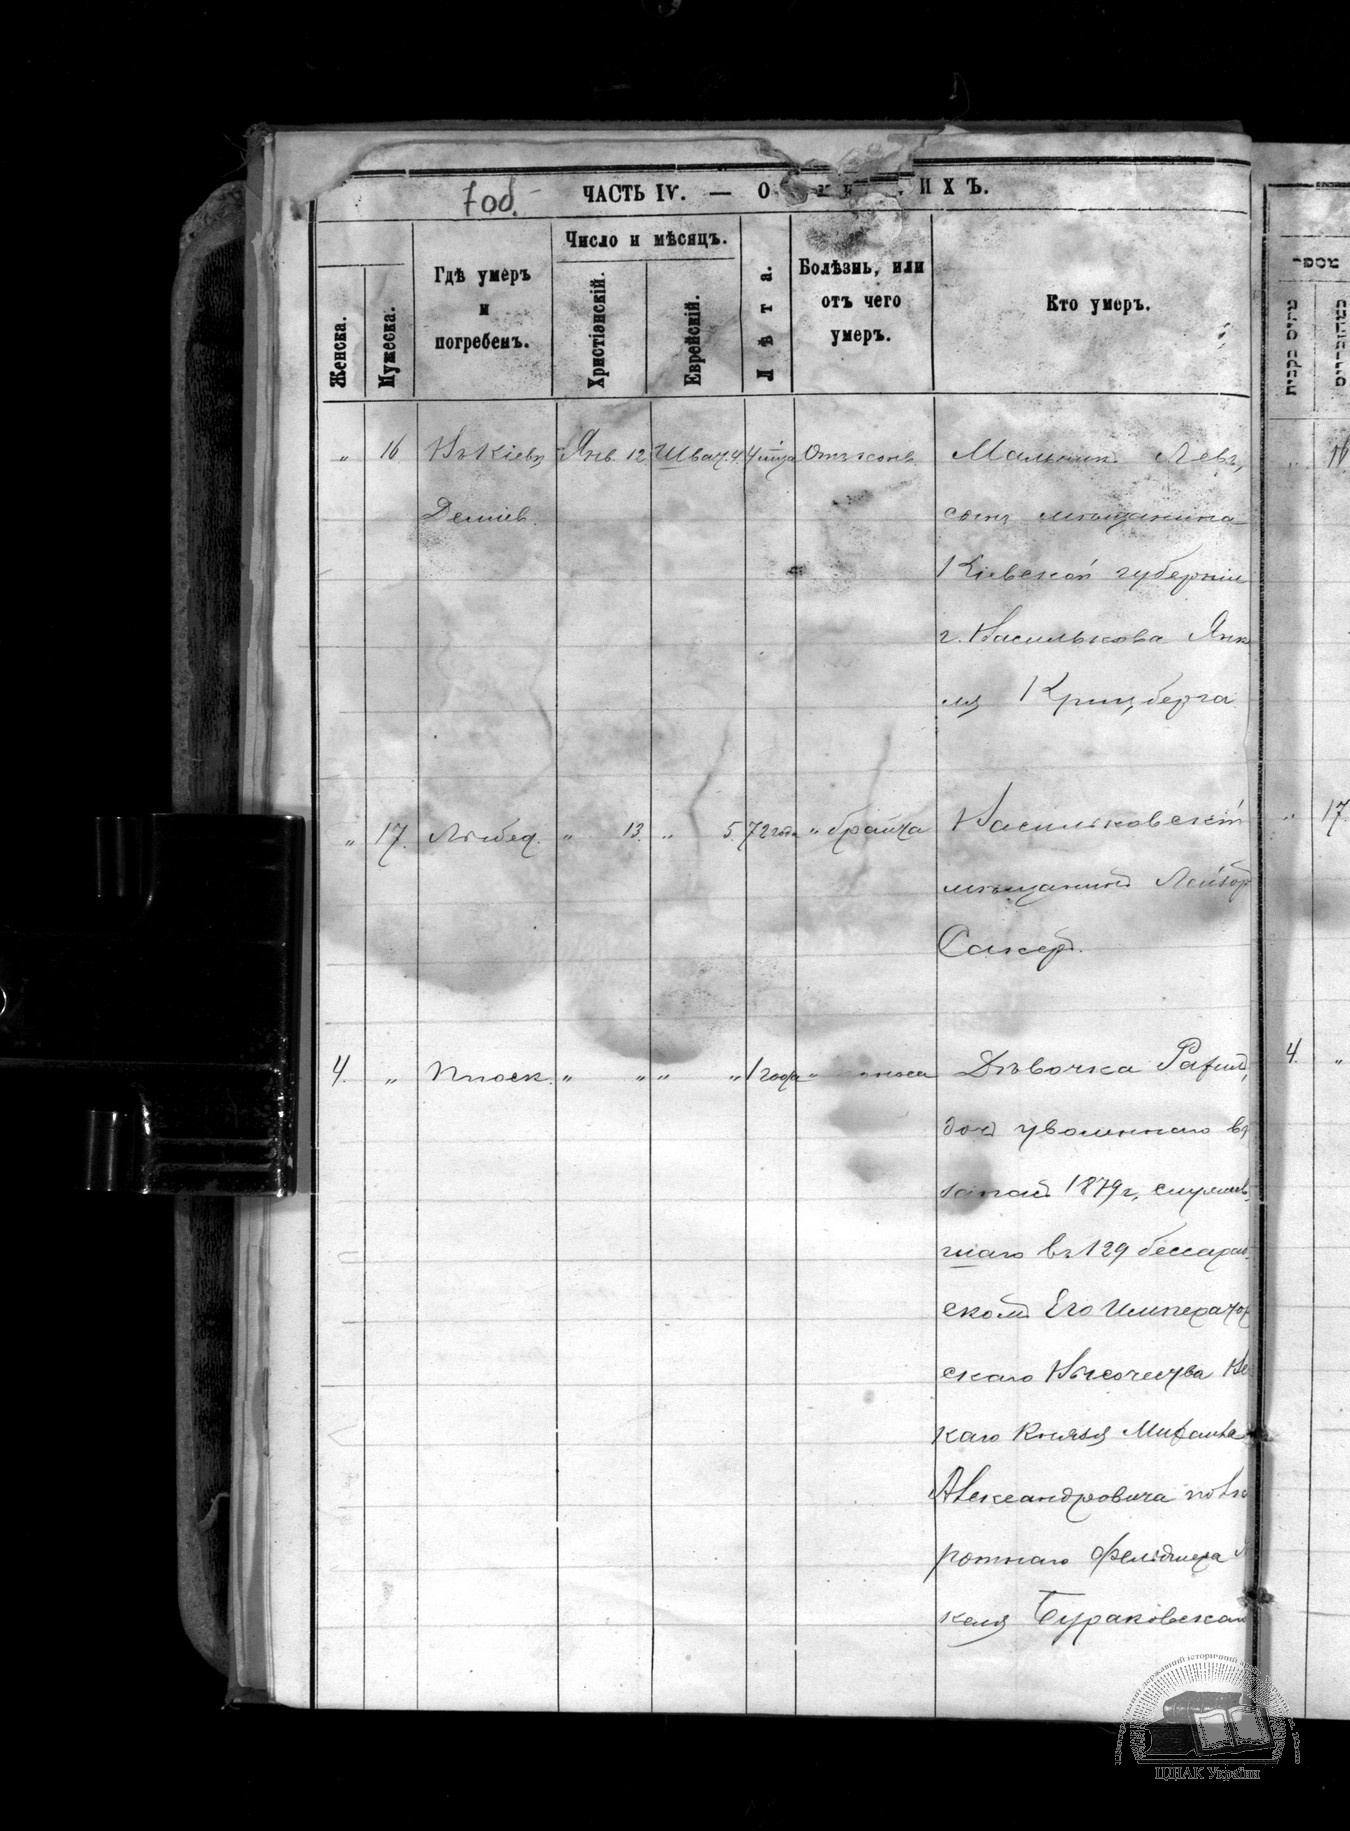 70об.
ЧАСТЬ IV. — О ИХЪ.
Женска.
Мужеска.
Гдѣ умеръ
и
погребенъ.
Число и мѣсяцъ.
Христіянскій.
Еврейскій.
Лѣта.
Болѣзнь, или
отъ чего
умеръ.
Кто умеръ.
„ 16 Въ Кіевѣ Янв. 12 Шват. 4. 4 м-ца Отъ Мальчикъ Левъ,
Деміев. сынъ мѣщанина
Кіевской губерніи
г. Василькова Янк
ля Кринцберга
„ 17. Лыбед. „ 13. „ 5. 72 года „ Васильковскій
мѣщанинъ
4. „ Плоск. „ „ „ „ 1 года „ Дѣвочка
дочь уволеннаго въ
запасъ 1879 г. служив
шаго въ 129 бессараб
скомъ Его Император
скаго Высочества Ве
каго Князя Михаила
Александровича полку
ротнаго фельдшера
келя Бураковскаго
מספר
16
„ 17.
4. „
ЦДІАК України